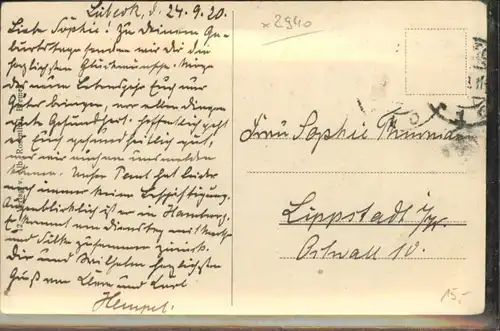 Lübeck, d. 24.9.20.
Liebe Sophie! Zu Deinem Ge-
burtstage senden wir Dir die
herzlichsten Glückwünsche. Möge
das neue Lebensjahr Euch nur
Gutes bringen, vor allen Dingen
gute Gesundheit. Hoffentlich geht
es Euch gesundheitlich gut,
was wir auch von uns melden
können. Unser Paul hat leider
noch immer keine Beschäftigung.
Augenblicklich ist er in Hamburg.
Er kommt am Dienstag mit
und zusammen zurück.
Dir und Wilhelm herzlichste
Grüße von Eltern und Karl
Hempel.
x 2940
Frau Sophie
Lippstadt i/W.
Ostwall 10.
15,-